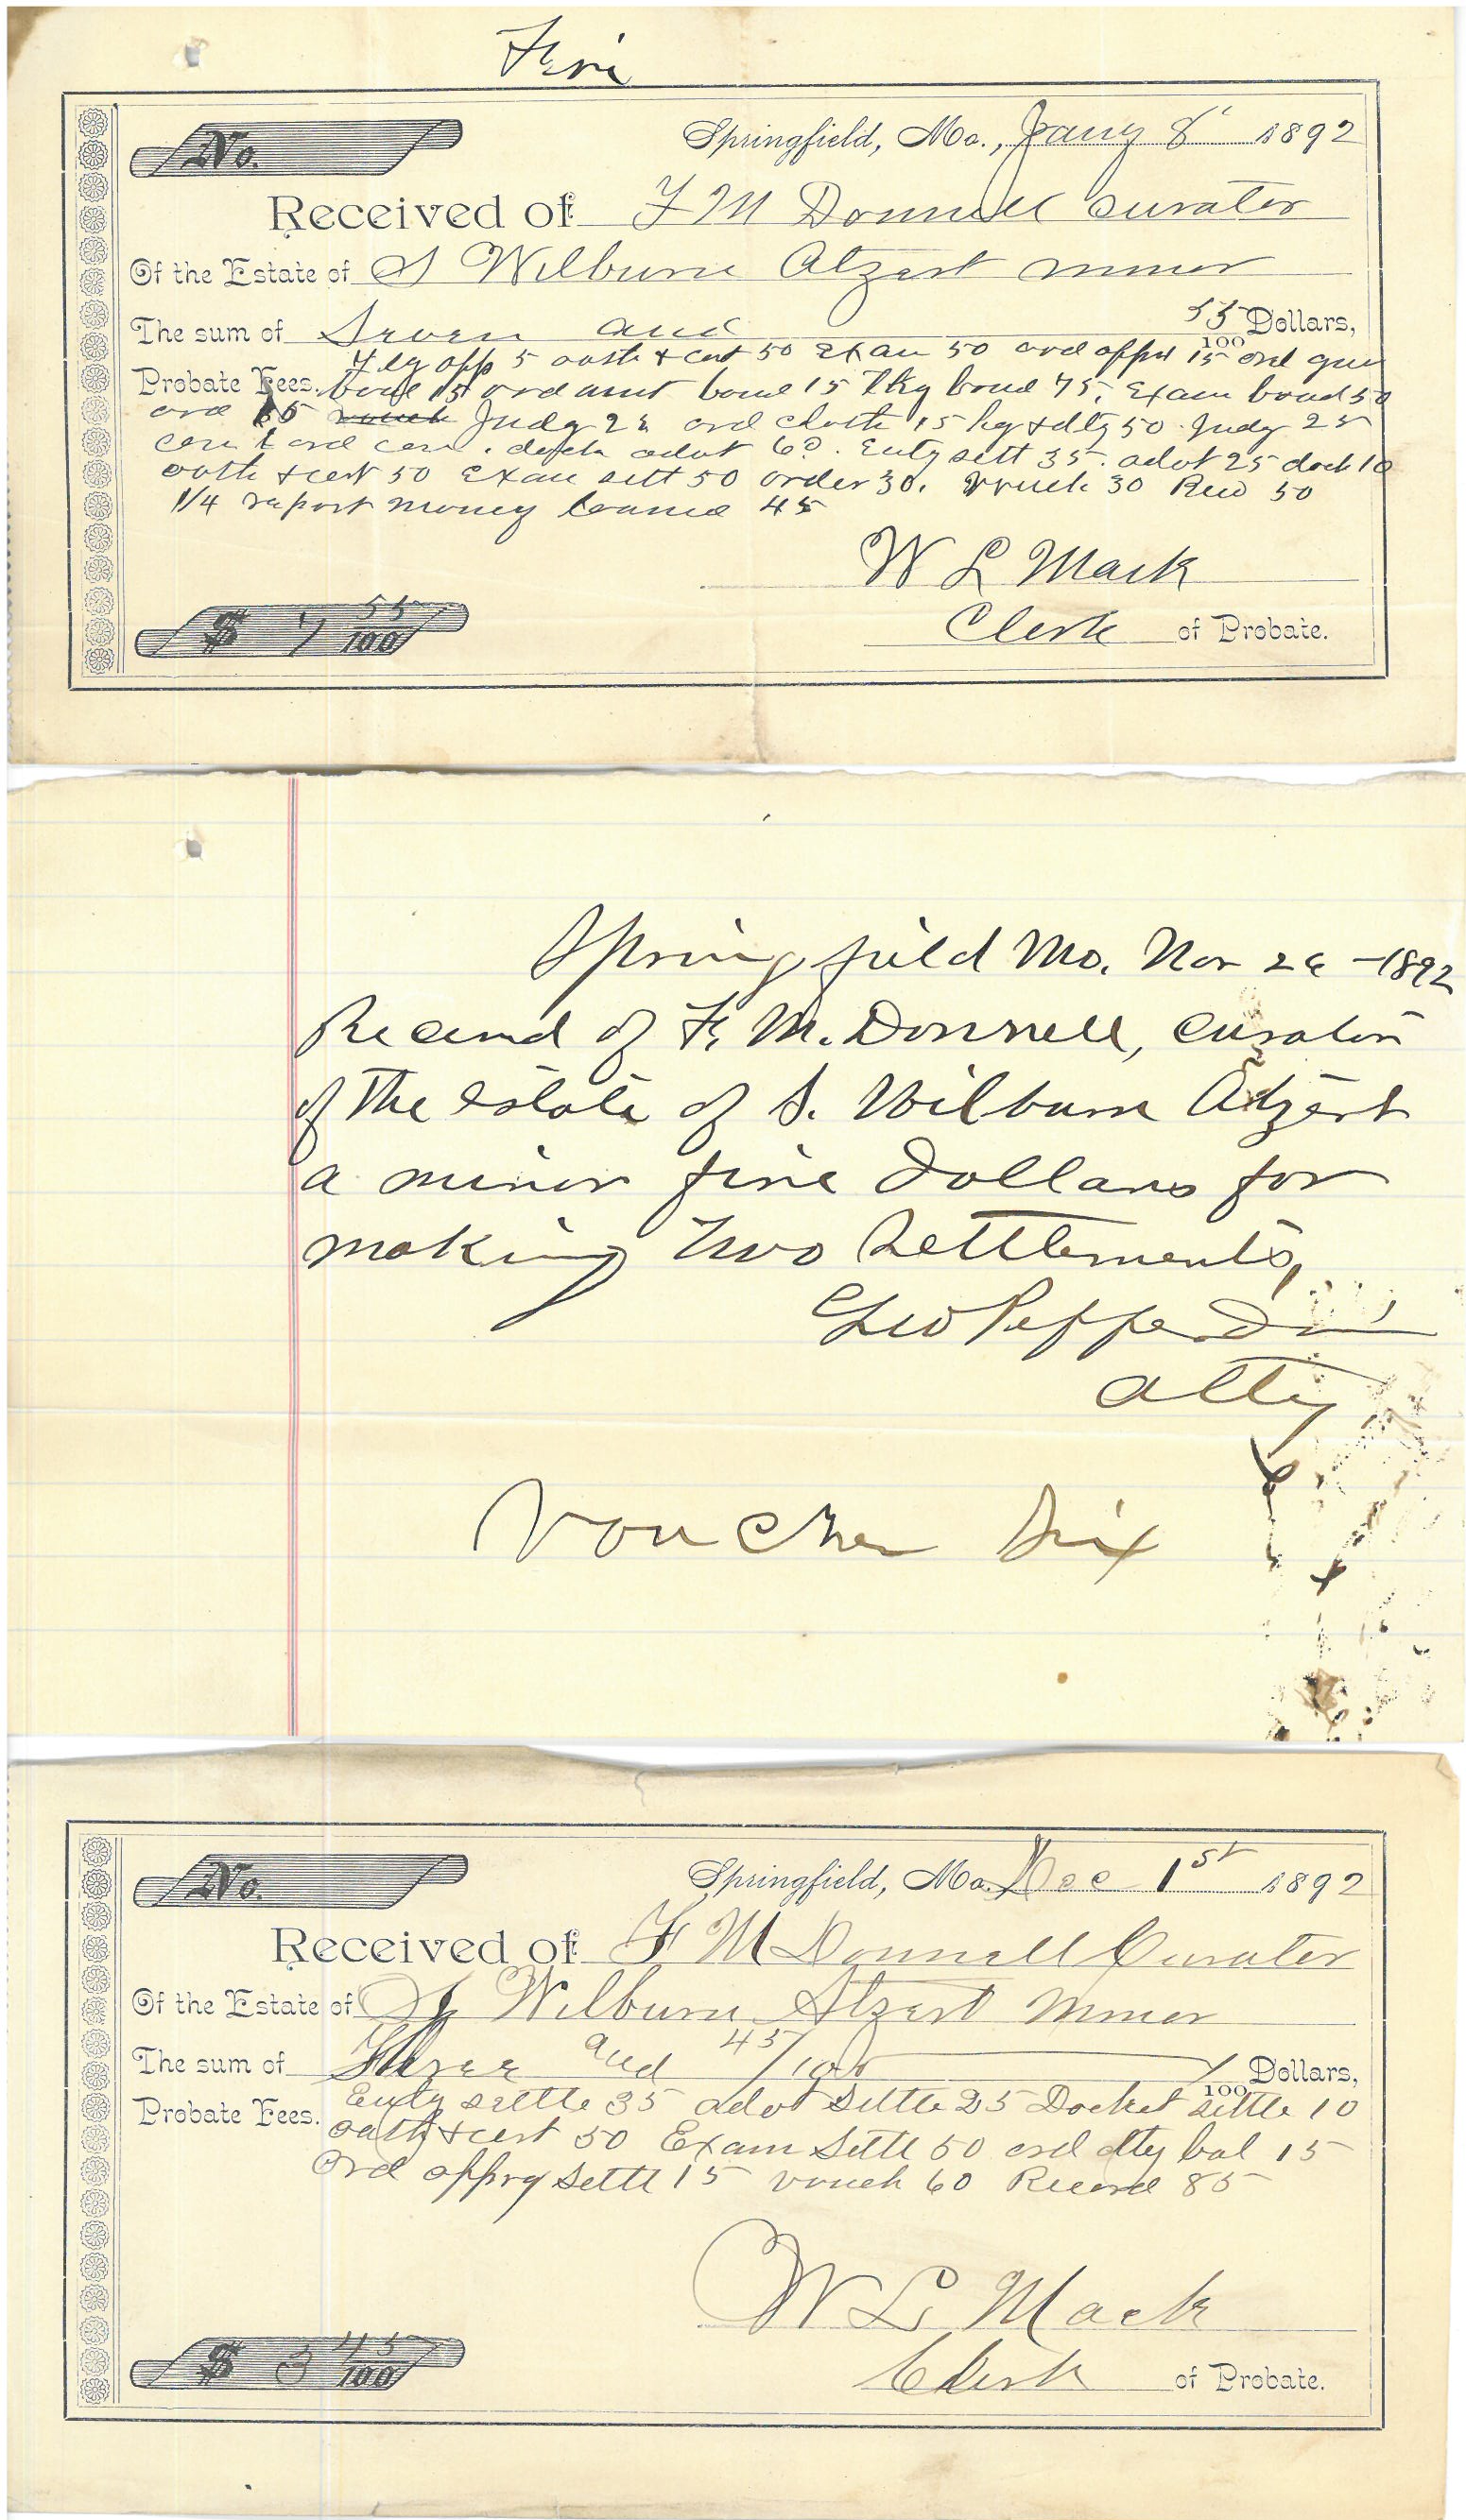 Five
No.
Springfield, Mo., Jany 8' 1892
Received of F M Donnell curator
Of the Estate of S Wilburn Atzert minor
The sum of Seven and 55/100 Dollars,
Flg app 5 oath + cert 50 Exam 50 ord appt 15 ord
Probate Fees. bond 15 ord amt bond 15 bond 75, Exam bond 50
ord 15 vouch Judg 25 ord cloth 15 + dltg 50 Judg 25
ord con. 60. Enty sett 35. advt 25 dock 10
oath + cert 50 Exam sett 50 order 30. vouch 30 Reco 50
1/4 report money loaned 45
W L Mack
Clerk of Probate.
$ 7 55/100
Springfield Mo. Nov 26 - 1892
Received of F. M. Donnell, curator
of the estate of S. Wilburn Atzert
a minor five dollars for
making two settlements,
Geo Pepperdine
atty
Voucher Six
No.
Springfield, Mo. Dec 1st 1892
Received of F M Donnell Curator
Of the Estate of S Wilburn Atzert minor
The sum of Three and 45/100 Dollars,
100
Enty settle 35 advt Settle 25 Docket settle 10
Probate Fees. oath + cert 50 Exam Settl 50 ord dltg bal 15
Ord apprg Settl 15 vouch 60 Record 85
W L Mack
Clerk of Probate.
$ 3 45/100